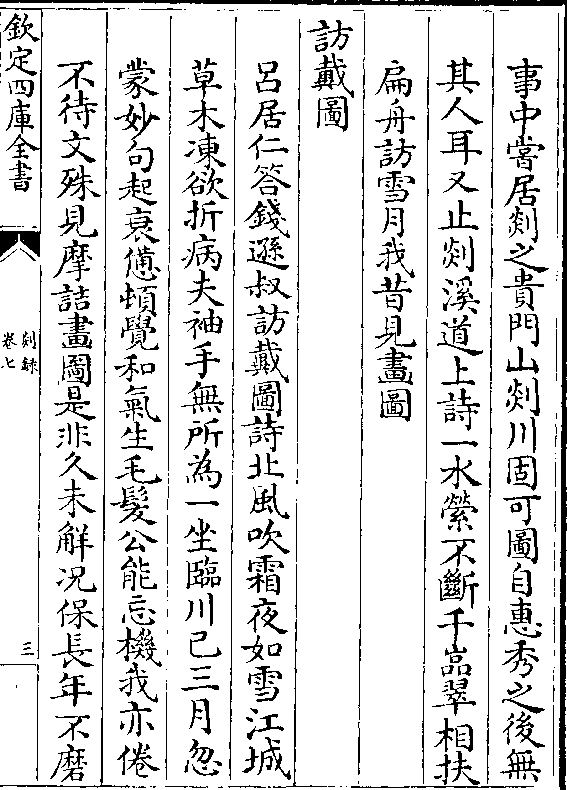 事中嘗居剡之貴門山剡川固可圖自惠秀之後無
其人耳又止剡溪道上詩一水縈不斷千嵓翠相扶
扁舟訪雪月我昔見畫圖
訪戴圖
呂居仁答錢遜叔訪戴圖詩北風吹霜夜如雪江城
草木凍欲折病夫袖手無所為一坐臨川已三月忽
蒙妙句起衰憊頓覺和氣生毛髮公能忘機我亦倦
不待文殊見摩詰畫圖是非久未解况保長年不磨
欽定四庫全書
剡録
卷七
三